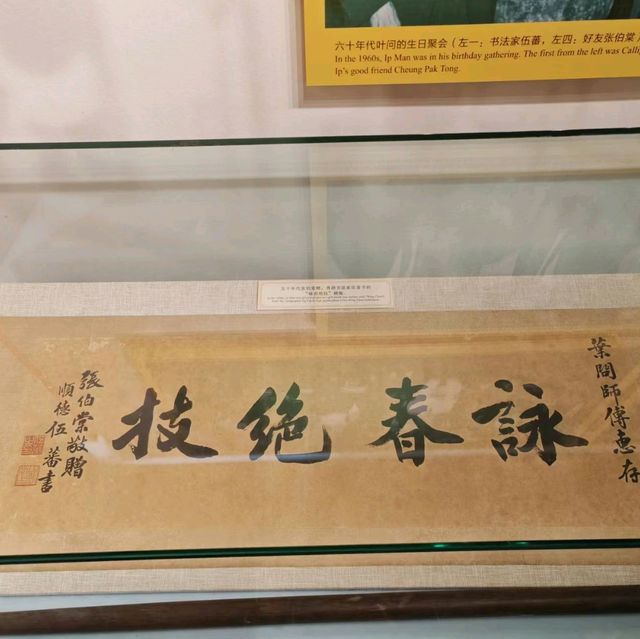 六十年代叶问的生日聚会（左一：书法家伍蕃，左四：好友张伯棠）
In the 1960s, Ip Man was in his birthday gathering. The first from the left was Calli
Ip's good friend Cheung Pak Tong.
葉問師傅惠存
詠春絕技
張伯棠敬贈
順德伍蕃書